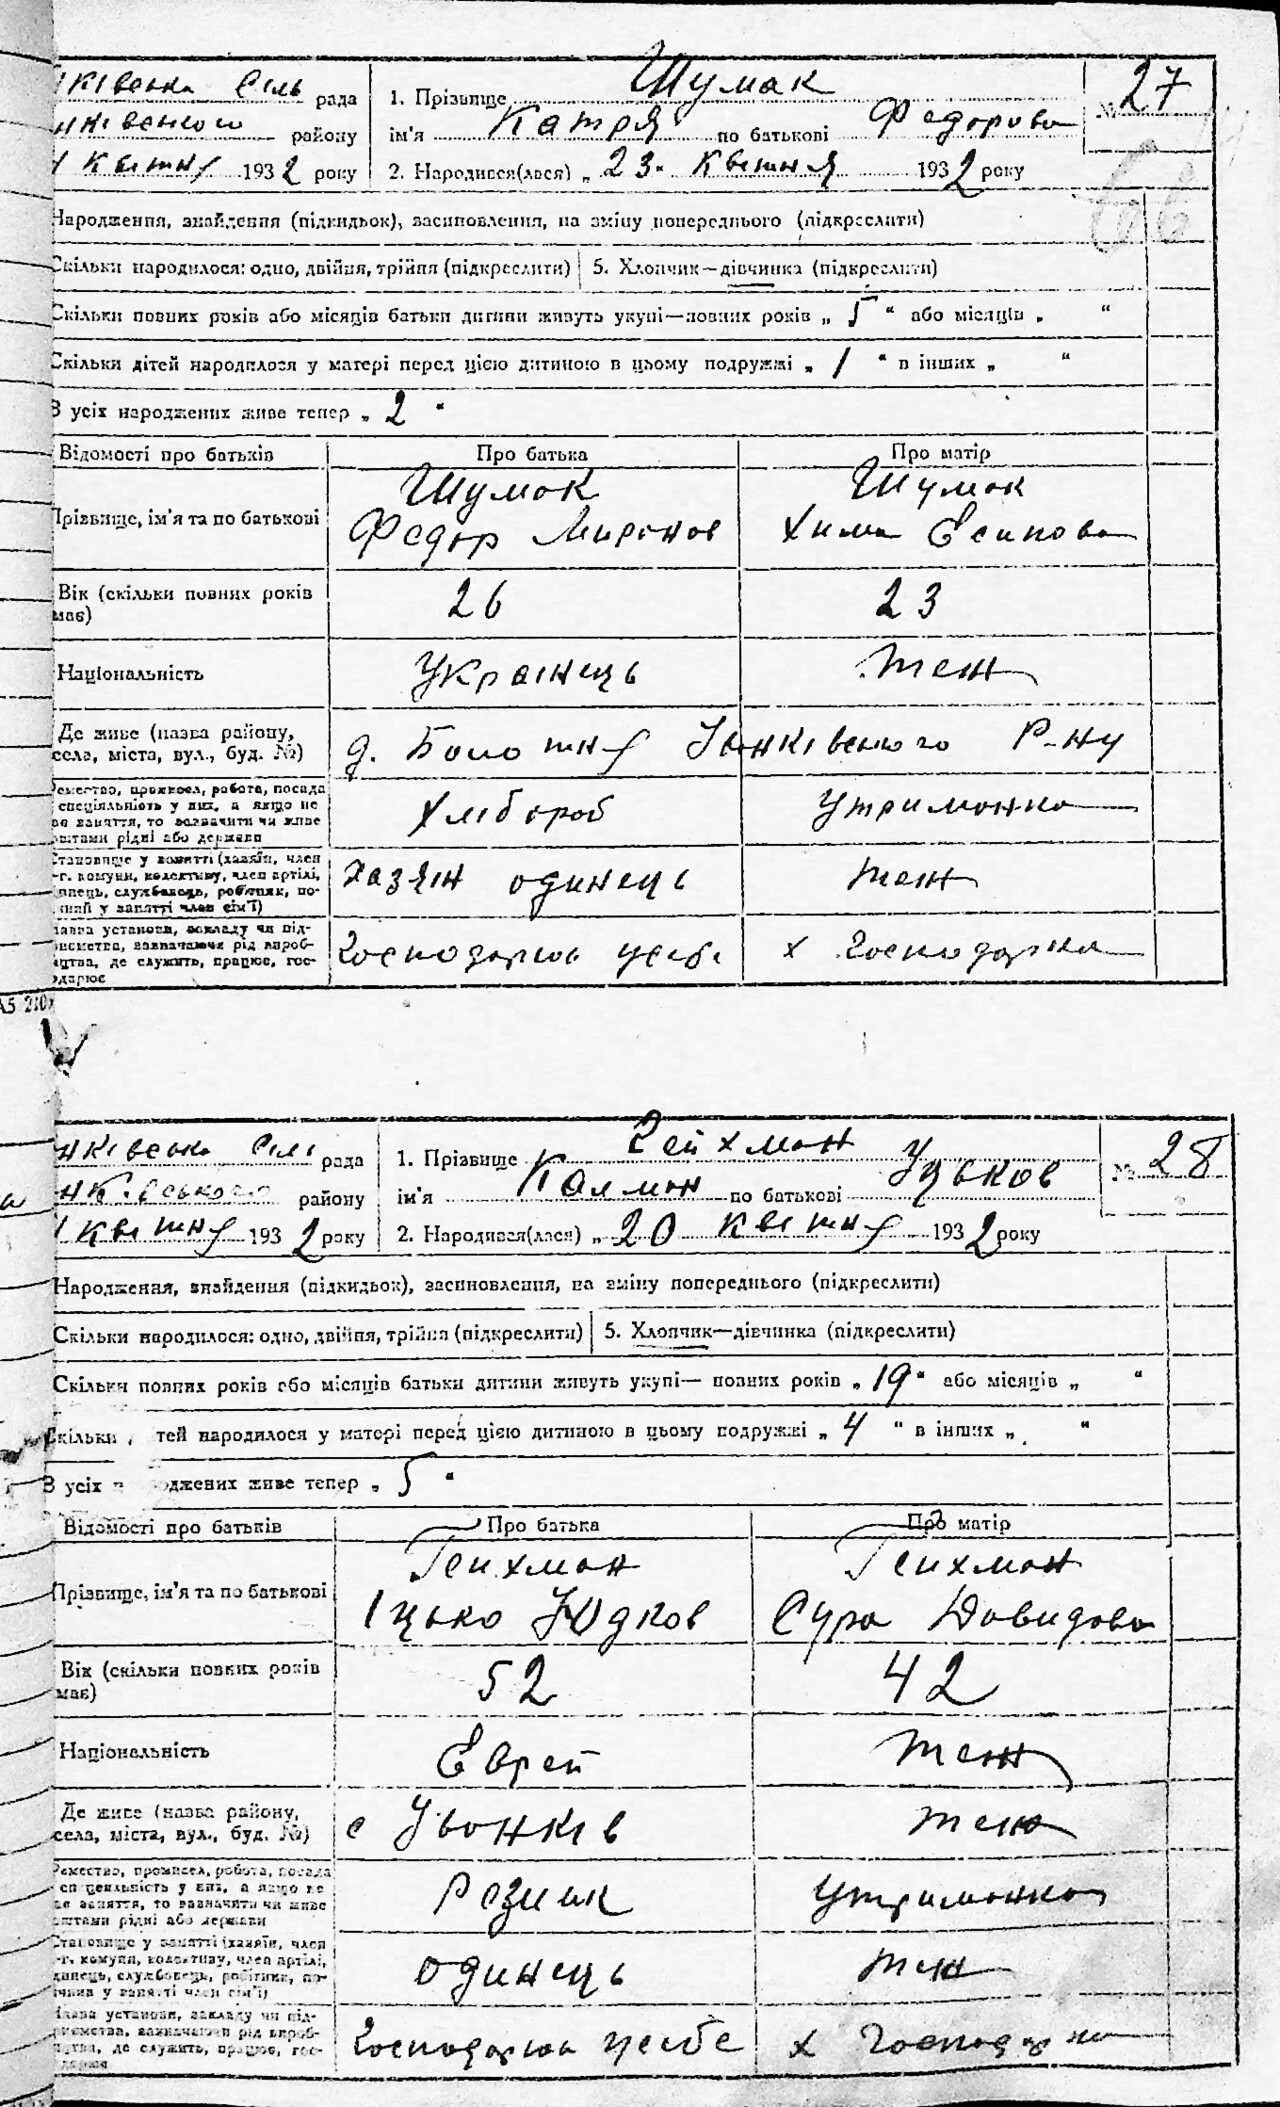 нківська Сіль рада
нківського району
1 Квітня 1932 року
1. Прізвище Шумак
ім'я Катря по батькові Федорова
2. Народився(лася) „ 23 " Квітня 1932 року
№ 27
Народження, знайдення (підкидьок), засиновлення, на зміну попереднього (підкреслити)
Скільки народилося: одно, двійня, трійня (підкреслити) 5. Хлопчик—дівчинка (підкреслити)
Скільки повних років або місяців батьки дитини живуть укупі—повних років „ 5 " або місяців „ "
Скільки дітей народилося у матері перед цією дитиною в цьому подружжі „ 1 " в інших „ "
З усіх народжених живе тепер „ 2 "
Відомості про батьків Про батька Про матір
Прізвище, ім'я та по батькові
Шумак Федор Миронов
Шумак Хима Есипова
Вік (скільки повних років має) 26 23
Національність Українець теж
Де живе (назва району, села, міста, вул., буд. №) д. Болотня Іванківського Р-ну
Ремество, промисел, робота, посада
спеціяльність у них, а якщо не
ає заняття, то зазначити чи живе
оштами рідні або держави
Хлібороб Утриманка
Становище у занятті (хазяїн, член
-г. комуни, колективу, член артілі,
динець, службовець, робітник, по-
ічний у занятті член сім'ї)
Хазяїн одинець теж
Назва установи, закладу чи під-
риємства, зазначаючи рід вироб-
ицтва, де служить, працює, гос-
подарює
Господарює у себе х Господарка
нківська Сілі рада
нківського району
1 Квітня 1932 року
1. Прізвище Гейхман
ім'я Калман по батькові Іцьков
2. Народився(лася) „ 20 квітня 1932 року
№ 28
Народження, знайдення (підкидьок), засиновлення, на зміну попереднього (підкреслити)
Скільки народилося: одно, двійня, трійня (підкреслити) 5. Хлопчик—дівчинка (підкреслити)
Скільки повних років або місяців батьки дитини живуть укупі— повних років „ 19 " або місяців „ "
Скільки тей народилося у матері перед цією дитиною в цьому подружжі „ 4 " в інших „ "
З усіх оджених живе тепер „ 5 "
Відомості про батьків Про батька Про матір
Прізвище, ім'я та по батькові
Гейхман Іцько Юдков
Гейхман Сура Давидова
Вік (скільки повних років має) 52 42
Національність Еврей теж
Де живе (назва району, села, міста, вул., буд. №) с Іванків теж
Ремество, промисел, робота, посада
спеціяльність у них, а якщо не
ає заняття, то зазначити чи живе
оштами рідні або держави
Резник утриманка
Становище у занятті (хазяїн, член
-г. комуни, колективу, член артілі,
динець, службовець, робітник, по-
ічний у занятті член сім'ї)
одинець теж
Назва установи, закладу чи під-
риємства, зазначаючи рід вироб-
ицтва, де служить, працює, гос-
подарює
Господарює у себе х Господарка